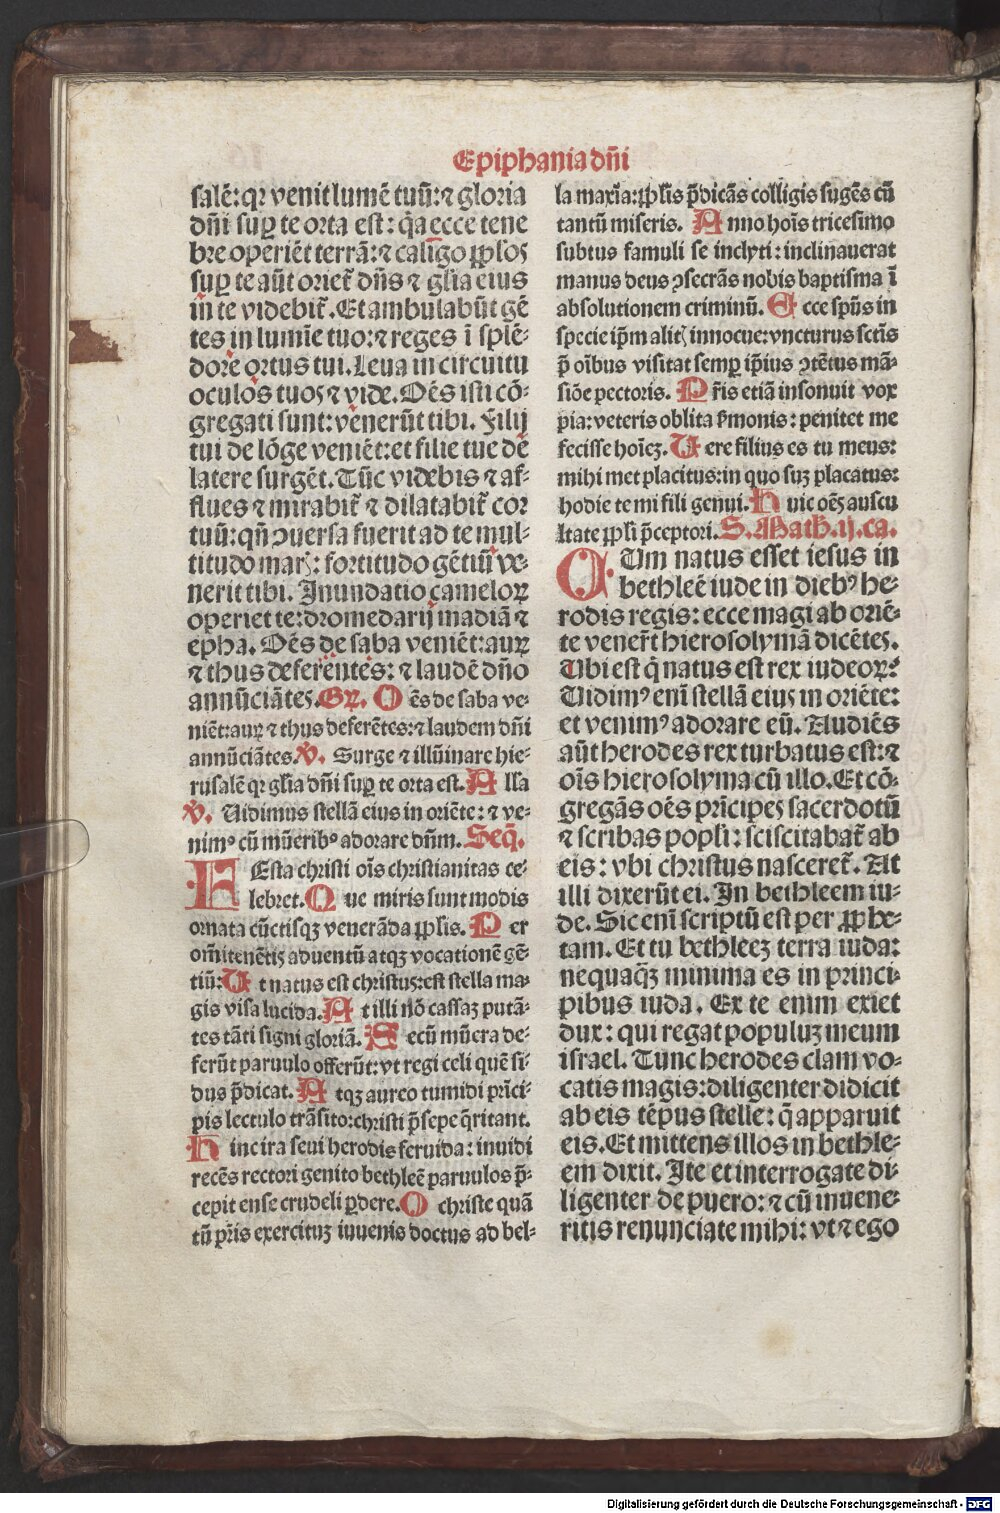 Epiphania dñi
salē: qꝛ venit lumē tuū: ⁊ gloria
dñi suꝑ te orta est: q̄a ecce tene
bre operiēt terrā: ⁊ caligo ꝓplos
suꝑ te aūt orieť dñs ⁊ gl̄ia eius
in te videbiť. Et ambulabūt gē
tes in lumīe tuo: ⁊ reges ī splē-
dore ortus tui. Leua in circuitu
oculos tuos ⁊ vide. Oēs isti cō-
gregati sunt: venerūt tibi. Filij
tui de lōge veniēt: et filie tue de
latere surgēt. Tūc videbis ⁊ af-
flues ⁊ mirabiť ⁊ dilatabiť cor
tuū: qñ ↄuersa fuerit ad te mul-
titudo marꝭ: fortitudo gētiū ve-
nerit tibi. Inundatio cameloꝝ
operiet te: dromedarij madiā ⁊
epha. Oēs de saba veniēt: auꝝ
⁊ thus deferentes: ⁊ laudē dño
annūciātes. Gꝝ. O ēs de saba ve-
niēt: auꝝ ⁊ thus deferētes: ⁊ laudem dñi
annūciātes. ℣. Surge ⁊ illūinare hie-
rusalē qꝛ gl̄ia dñi suꝑ te orta est. A lla
℣. Uidimus stellā eius in oriēte: ⁊ ve-
nimꝰ cū mūeribꝰ adorare dñm. Seq̄.
F Esta christi oīs christianitas ce-
lebret. Q ue miris sunt modis
ornata cūctisqꝫ venerāda ꝓplis. P er
om̄itenētis aduentū atqꝫ vocationē gē-
tiū: U t natus est christus: est stella ma-
gis visa lucida. A t illi nō cassaꝫ putā-
tes tāti signi gloriā. S ecū mūera de-
ferūt paruulo offerūt: vt regi celi quē si-
dus p̄dicat. A tqꝫ aureo tumidi prīci-
pis lectulo trāsito: christi p̄sepe q̄ritant.
H inc ira seui herodis feruida: inuidi
recēs rectori genito bethleē paruulos p̄-
cepit ense crudeli ꝑdere. O christe quā
tū pr̄is exercitꝰ iuuenis doctus ad bel-
la maxīa: ꝓplis p̄dicās colligis sugēs cū
tantū miseris. A nno hoīs tricesimo
subtus famuli se inclyti: inclinauerat
manus deus ↄsecrās nobis baptisma ī
absolutionem criminū. E cce spūs in
specie ip̄m alitꝭ innocue: vncturus sctīs
p̄ oībus visitat semꝑ ip̄ius ↄtētus mā-
siōe pectoris. P r̄is etiā insonuit vox
pia: veteris oblita ẜmonis: penitet me
fecisse hoīeꝫ. U ere filius es tu meus:
mihi met placitus: in quo suꝫ placatus:
hodie te mi fili genui. H uic oēs auscu
ltate ꝓpli p̄ceptori. S. Math. ij. ca.
C Um natus esset iesus in
bethleē iude in diebꝰ he-
rodis regis: ecce magi ab oriē-
te venerūt hierosolymā dicētes.
Ubi est q̄ natus est rex iudeoꝝ?
Uidimꝰ enī stellā eius in oriēte:
et venimꝰ adorare eū. Audiēs
aūt herodes rex turbatus est: ⁊
oīs hierosolyma cū illo. Et cō-
gregās oēs prīcipes sacerdotū
⁊ scribas popl̄i: sciscitabať ab
eis: vbi christus nascereť. At
illi dixerūt ei. In bethleem iu-
de. Sic enī scriptū est per ꝓphe-
tam. Et tu bethleeꝫ terra iuda:
nequaq̄ꝫ minima es in princi-
pibus iuda. Ex te enim exiet
dux: qui regat populuꝫ meum
israel. Tunc herodes clam vo-
catis magis: diligenter didicit
ab eis tēpus stelle: q̄ apparuit
eis. Et mittens illos in bethle-
em dixit. Ite et interrogate di-
ligenter de puero: ⁊ cū inuene-
ritis renunciate mihi: vt ⁊ ego
Digitalisierung gefördert durch die Deutsche Forschungsgemeinschaft - DFG